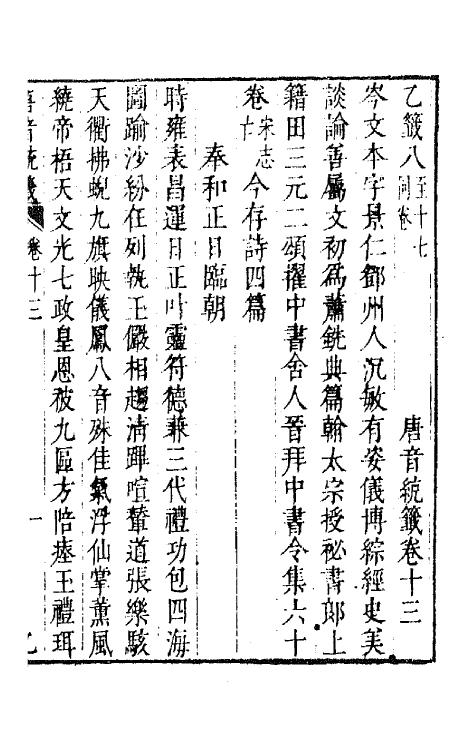 乙籤八至十七同卷 唐音統籤卷十三
岑文本字景仁鄧州人沉敏有姿儀博綜經史美
談論善屬文初為蕭銑典篇翰太宗授祕書郎上
籍田三元二頌擢中書舍人晉拜中書令集六十
卷宋志今存詩四篇
奉和正日臨朝
時雍表昌運日正叶靈符德兼三代禮功包四海
圖踰沙紛在列執玉儼相趨清蹕喧輦道張樂駭
天衢拂蜺九旗映儀鳳八音殊佳氣浮仙掌薰風
繞帝梧天文光七政皇恩被九區方陪瘞玉禮珥
唐音統籤 卷十三 一